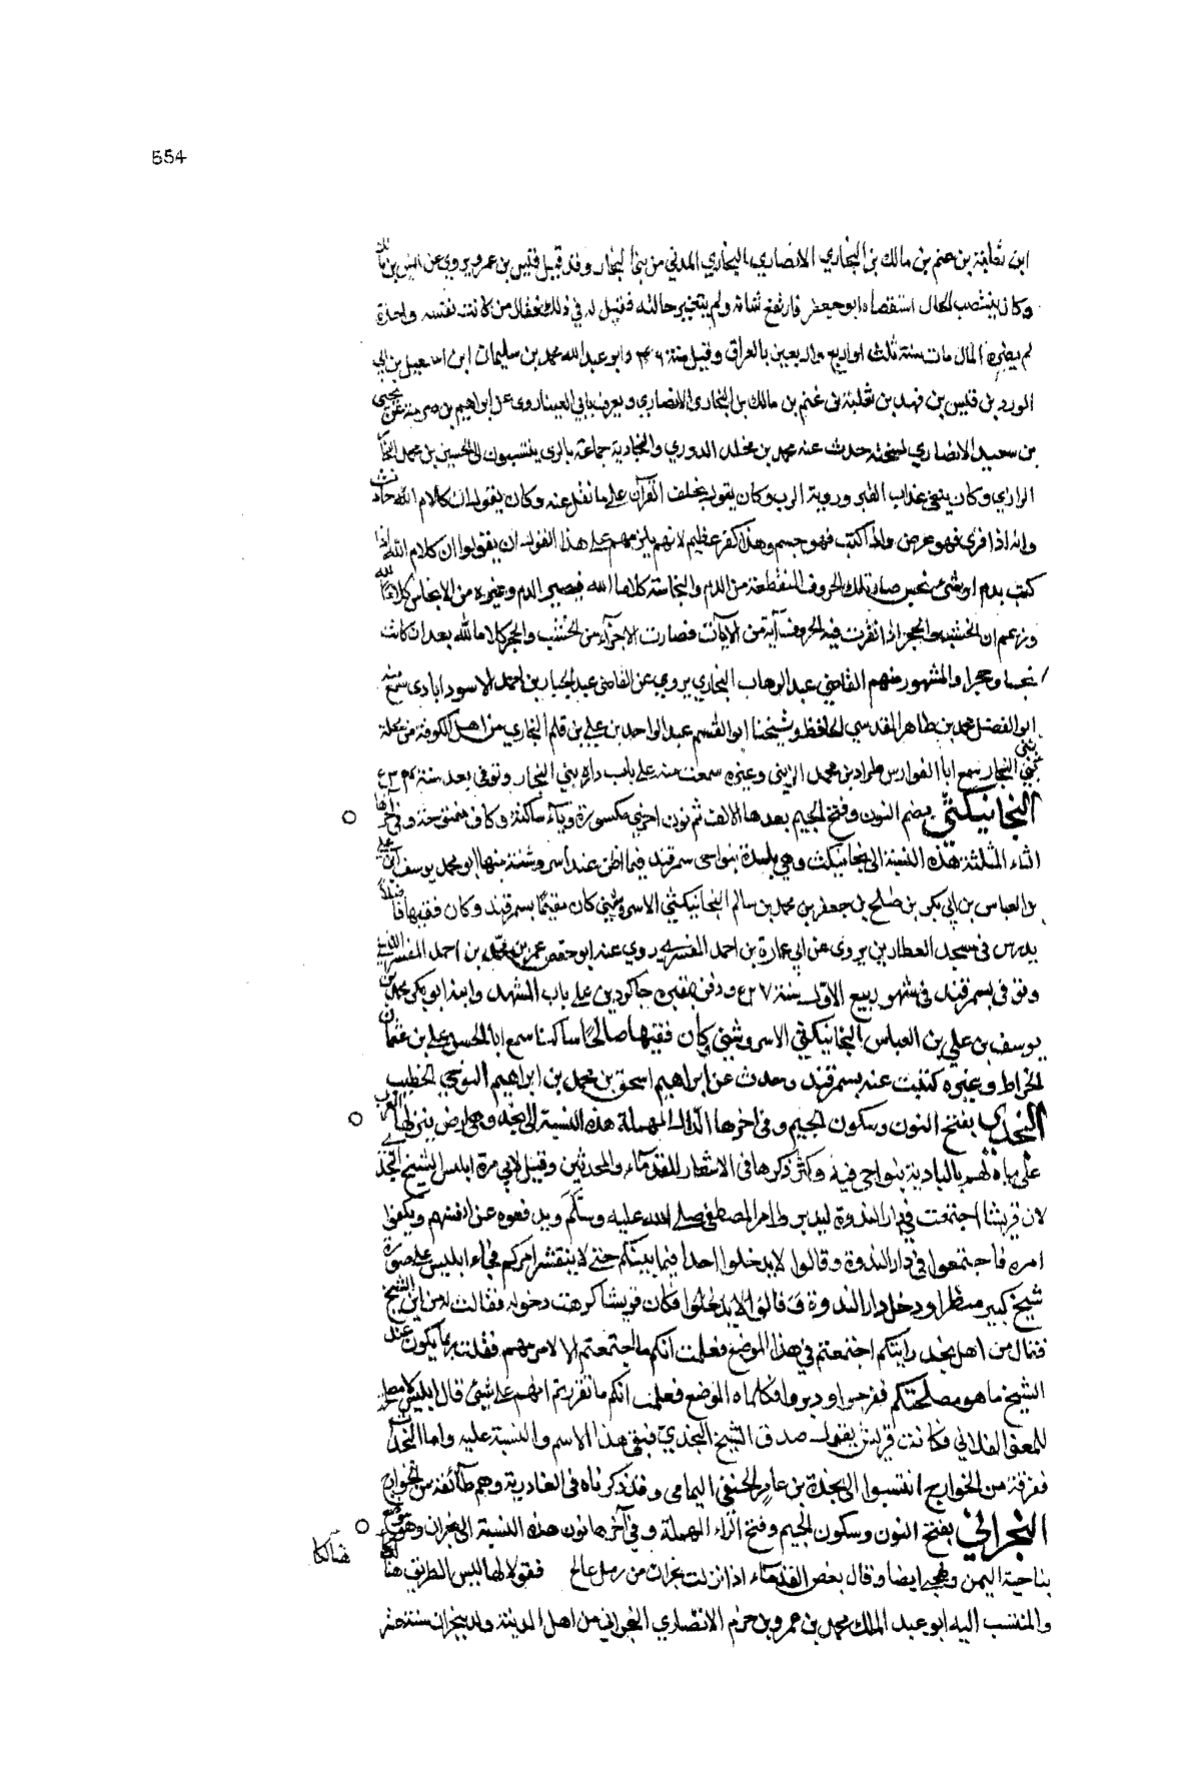 554
ابن ثعلبة بن غنم بن مالك بن النجاري الانصاري النجاري المدني من بني النجار وقد قيل قيس بن عمرو يروي عن انس بن مالك
وكان ينتصب للحال استقضاه ابو جعفر فارتفع شانه ولم يتغير حاله فقيل له في ذلك فقال من كانت نفسه واحدة
لم يغيره المال مات سنة ثلث او اربع واربعين بالعراق وقيل سنة وابو عبد الله محمد بن سليمان ابن اسمعيل بن ابي
الورد بن قيس بن فهد بن ثعلبة بن غنم بن مالك بن النجاري الانصاري ويعرف بابي العينا روى عن ابراهيم بن صرمة عن يحيى
بن سعيد الانصاري نسخة حدث عنه محمد بن مخلد الدوري والنجارية جماعة بالري ينتسبون الى الحسين بن محمد النجار
الرازي وكان ينفي عذاب القبر وروية الرب وكان يقول بخلق القرآن على ما نقل عنه وكان يقول ان كلام الله حادث
وانه اذا قرئ فهو عرض واذا كتب فهو جسم وهذا كفر عظيم لانهم يلزمهم على هذا القول ان يقولوا ان كلام الله اذا
كتب بدم او بشيء نجس صارت تلك الحروف المنقطعة من الدم والنجاسة كلاما لله فيصير الدم وغيره من الانجاس كلاما لله
وزعم ان الخشب والحجر اذا نقرت فيه الحروف آية من الآيات فصارت الاجزاء من الخشب والحجر كلاما لله بعد ان كانت
نجسا وحجرا والمشهور منهم القاضي عبد الوهاب النجاري يروي عن القاضي عبد الجبار بن احمد الاسود ابادي سمع منه
ابو الفضل محمد بن طاهر المقدسي الحافظ وشيخنا ابو القسم عبد الواحد بن علي بن النجاري من اهل الكوفة من محلة
بني النجار سمع ابا الفوارس طراد بن محمد الزينبي وغيره سمعت منه على باب داره ببني النجار وتوفي بعد سنة
النجانيكثي بضم النون وفتح الجيم بعدها الالف ثم نون اخرى مكسورة وياء ساكنة وكاف مفتوحة وفي آخرها
الثاء المثلثة هذه النسبة الى نجانيكث وهي بلدة بنواحي سمرقند فيما اظن عند اسروشنة منها ابو محمد يوسف بن علي
بن العباس بن ابي بكر بن صلح بن جعفر بن محمد بن سالم النجانيكثي الاسروشني كان مقيما بسمرقند وكان فقيها فاضلا
يدرس في مسجد العطارين يروي عن ابي عمارة بن احمد روى عنه ابو حفص عمر بن محمد بن احمد النسفي
وتوفي بسمرقند في شهر ربيع الاول سنة ودفن بمقبرة جاكرديزه على باب المشهد وابنه ابو بكر محمد بن
يوسف بن علي بن العباس النجانيكثي الاسروشني كان فقيها صالحا ساكنا سمع ابا الحسن علي بن عثمان
الخراط وغيره كتبت عنه بسمرقند وحدث عن ابراهيم اسحق بن محمد بن ابراهيم النوحي الخطيب
النجدي بفتح النون وسكون الجيم وفي اخرها الدال المهملة هذه النسبة الى نجد وهي ارض ينزلها العرب
على مياه لهم بالبادية بنواحي فيد وكثر ذكرها في الاشعار للقدماء والمحدثين وقيل لابي مرة ابليس الشيخ النجدي
لان قريشا اجتمعت في دار الندوة ليدبروا امر المصطفى صلى الله عليه وسلم ويدفعوه عن انفسهم ويكفوا
امره فاجتمعوا في دار الندوة وقالوا لا يدخلوا احدا فيما بينكم حتى لا ينتشر امركم فجاء ابليس على صورة
شيخ كبير منظرا ودخل دار الندوة فقالوا لا يدخلوا فكان قريشا كرهت دخوله فقالت له من اين الشيخ
فقال من اهل نجد رايتكم اجتمعتم في هذا الموضع فعلمت انكم ما اجتمعتم الا لامر مهم فقلت ربما يكون عند
الشيخ ما هو مصلحتكم ففرحوا ودبروا فكلما الموضع فعلمت انكم ما تقررتم على شيء قال ابليس لا يصلح
للمعنى الفلاني فكانت قريش يقول صدق الشيخ النجدي فبقي هذا الاسم والنسبة عليه واما النجدات
ففرقة من الخوارج انتسبوا الى نجدة بن عامر الحنفي اليمامي وقد ذكرناه في العاذرية وهم طائفة من الخوارج
النجراني بفتح النون وسكون الجيم وفتح الراء المهملة وفي آخرها نون هذه النسبة الى نجران وهو موضع
بناحية اليمن وهجر ايضا وقال بعض القدماء اذا نزلت نجران من رمل عالج فقولا لها ليس الطريق هنالكا
والمنتسب اليه ابو عبد الملك محمد بن عمرو بن حزم الانصاري النجراني من اهل المدينة ولد بنجران سنة عشر